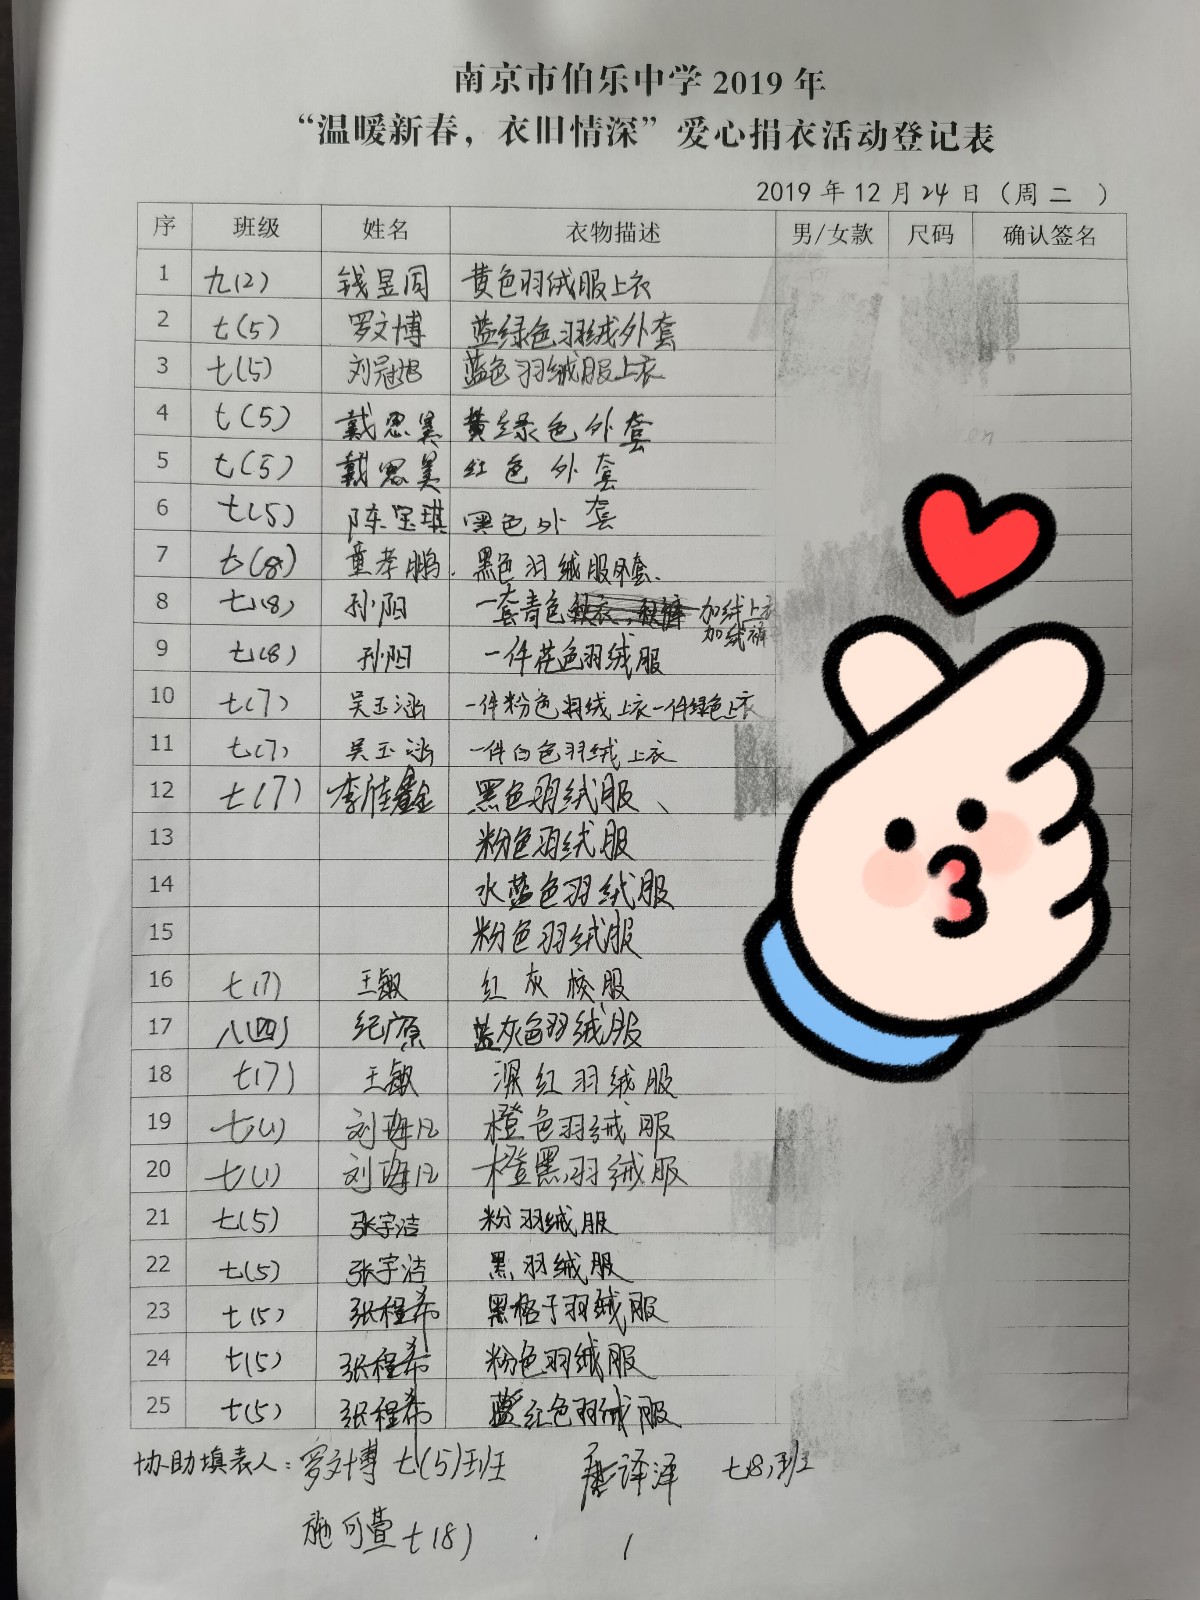 南京市伯乐中学 2019 年
“温暖新春，衣旧情深”爱心捐衣活动登记表
2019 年 12 月 24 日（周 二 ）
序 班级 姓名 衣物描述 男/女款 尺码 确认签名
1 九(2) 钱昱同 黄色羽绒服上衣
2 七(5) 罗文博 蓝绿色羽绒外套
3 七(5) 刘冠旭 蓝色羽绒服上衣
4 七(5) 戴思昊 黄绿色外套
5 七(5) 戴思昊 红色外套
6 七(5) 陈宝琪 黑色外套
7 七(8) 童孝鹏. 黑色羽绒服外套.
8 七(8) 孙阳 一套青色 加绒上衣
加绒裤
9 七(8) 孙阳 一件花色羽绒服
10 七(7) 吴玉涵 一件粉色羽绒上衣一件绿色上衣
11 七(7) 吴玉涵 一件白色羽绒上衣
12 七(7) 李佳鑫 黑色羽绒服、
13 粉色羽绒服
14 水蓝色羽绒服
15 粉色羽绒服
16 七(7) 王敏 红灰校服
17 八(四) 纪广原 蓝灰色羽绒服
18 七(7) 王敏 深红羽绒服
19 七(1) 刘海凡 橙色羽绒服
20 七(1) 刘海凡 橙黑羽绒服
21 七(5) 张宇洁 粉羽绒服
22 七(5) 张宇洁 黑羽绒服
23 七(5) 张程希 黑格子羽绒服
24 七(5) 张程希 粉色羽绒服
25 七(5) 张程希 蓝红色羽绒服
协助填表人：罗文博 七(5)班 唐译泽 七(8)班
施可萱 七(8)